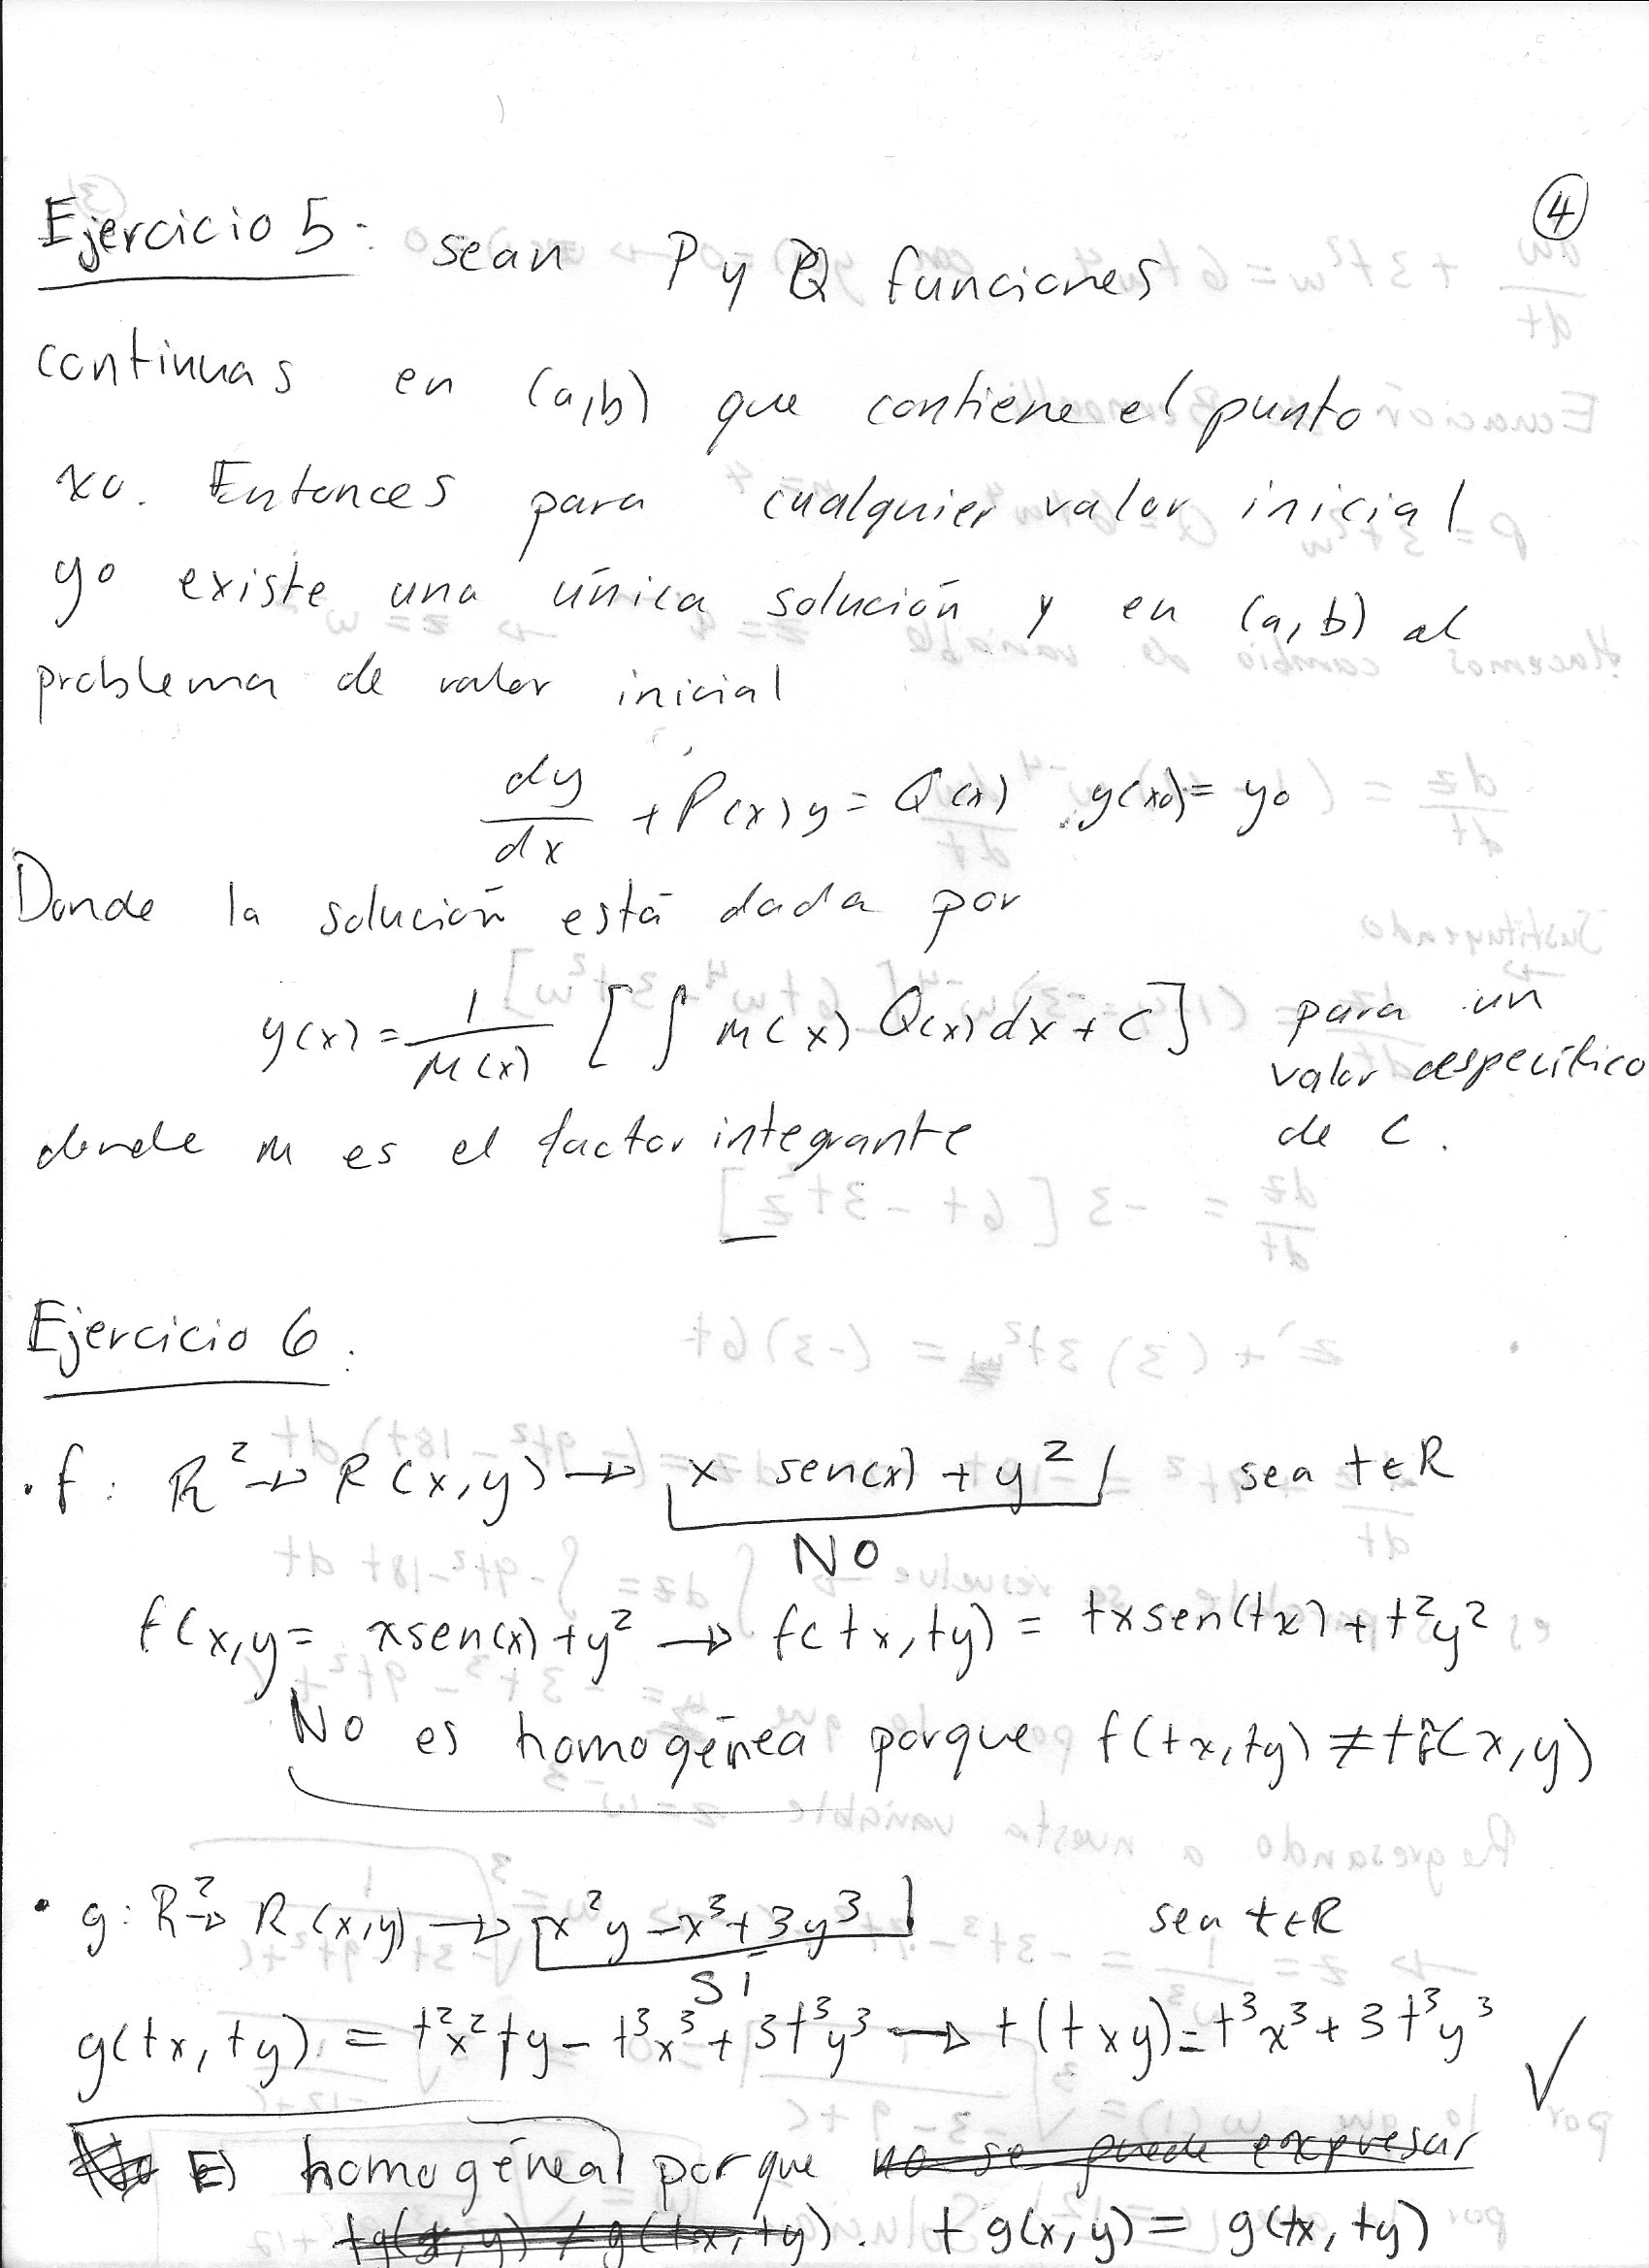 4
Ejercicio 5: sean P y Q funciones
continuas en (a,b) que contiene el punto
x0. Entonces para cualquier valor inicial
y0 existe una única solución y en (a,b) al
problema de valor inicial
dy/dx + P(x)y = Q(x) y(x0) = y0
Donde la solución está dada por
y(x) = 1/M(x) [∫ M(x) Q(x) dx + C] para un
valor especifico
de C.
donde M es el factor integrante
Ejercicio 6.
· f: R² → R (x,y) → x sen(x) + y² sea t∈R
NO
f(x,y = xsen(x) + y² → f(tx,ty) = txsen(tx) + t²y²
No es homogénea porque f(tx,ty) ≠ tf(x,y)
· g: R² → R (x,y) → x²y - x³ + 3y³ sea t∈R
Sí
g(tx,ty) = t²x²ty - t³x³ + 3t³y³ → t(txy) = t³x³ + 3t³y³ ✓
No Es homogénea porque no se puede expresar
tg(x,y) ≠ g(tx,ty). t g(x,y) = g(tx,ty)